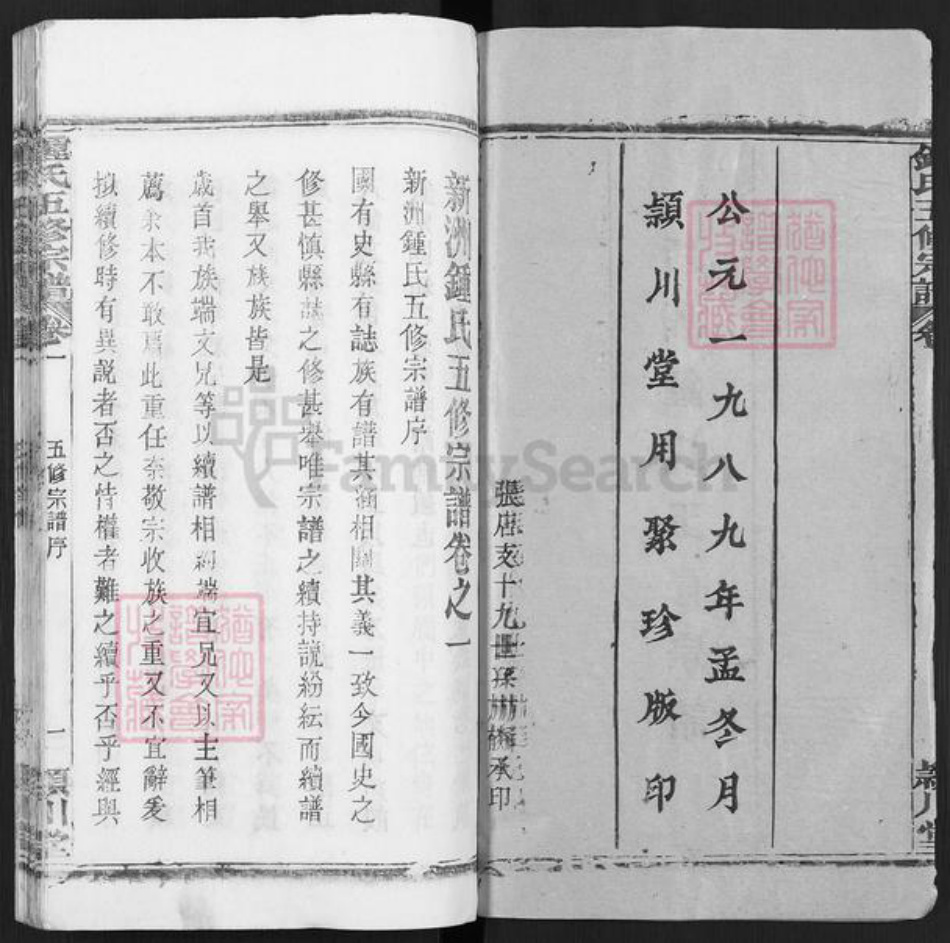 公元一九八九年孟冬月
頴川堂用聚珍版印
張店支十九世
承印
新洲鍾氏五修宗譜卷之一
新洲鍾氏五修宗譜序
國有史縣有誌族有譜其涵相關其義一致今國史之
修甚慎縣誌之修甚舉唯宗譜之續持說紛紜而續譜
之舉又族族皆是
歲首我族端文兄等以續譜相約端宜兄又以主筆相
薦余本不敢肩此重任奈敬宗收族之重又不宜辭爰
拟續修時有異説者否之恃權者難之續乎否乎經與
鍾氏五修宗譜 卷一
五修宗譜序
一
頴川堂
鍾氏五修宗譜 卷
頴川堂
FamilySearch